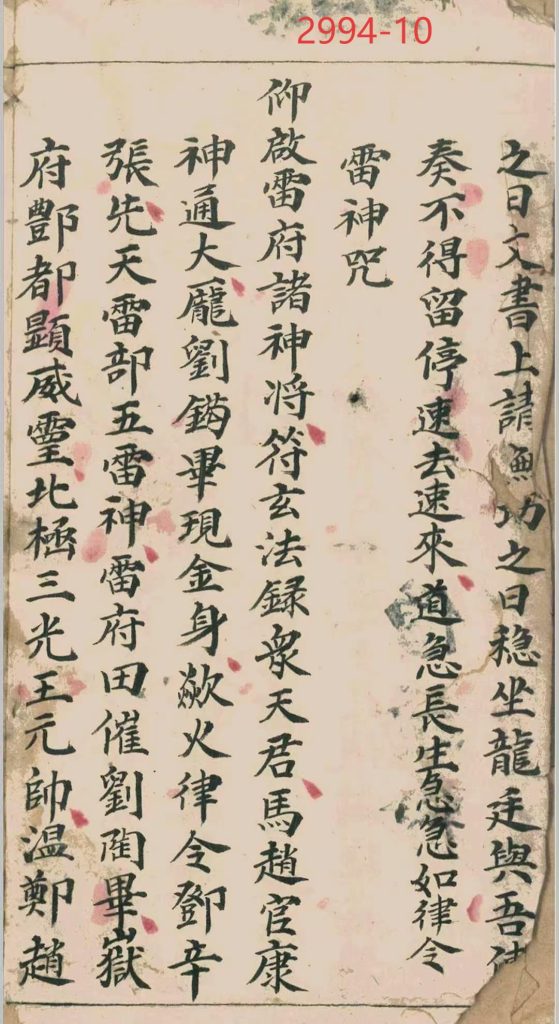 2994-10
之日文書上請無功之日稳坐龍廷與吾使
奏不得留停速去速來道急長生急急如律令
雷神咒
仰啟雷府諸神将符玄法録衆天君馬趙官康
神通大龐劉鍚畢現金身歘火律令鄧辛
張先天雷部五雷神雷府田催劉陶畢嶽
府酆都顕威靈北極三光王元帥温鄭趙